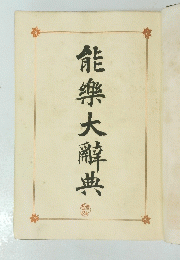 能樂大辭典